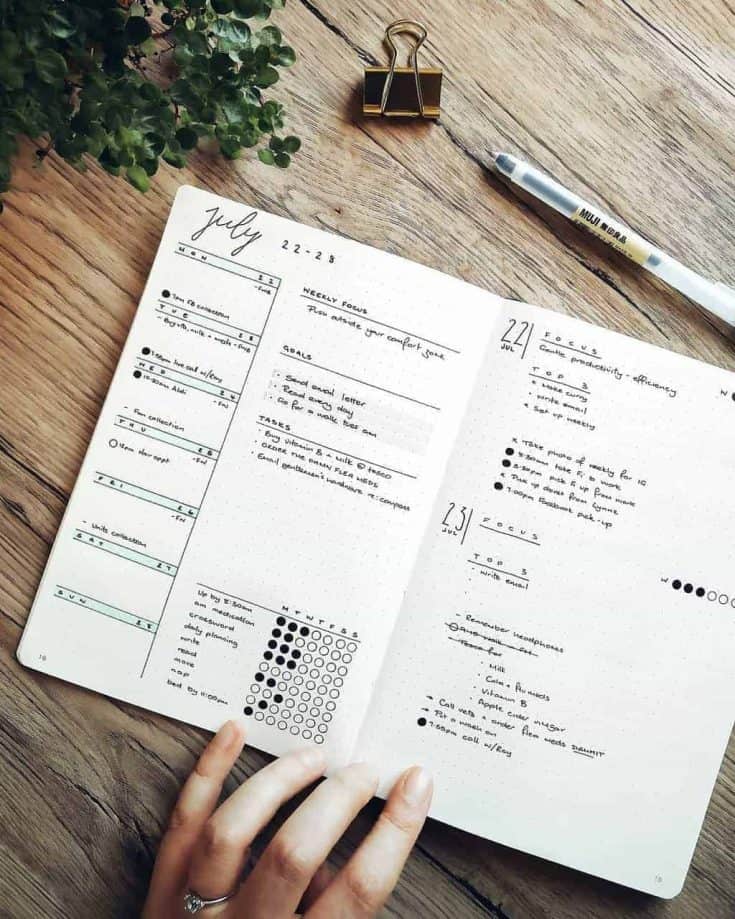 July 22-28
MON 22
- FNB
7am FB collection
TUE 23
- Buy vitb, milk + meds - FNB
1:55pm live call w/Ray
WED 24
- FN
10:30am Aldi
- Fan collection
THU 25
- FN
12pm dar appt
FRI 26
- FN
- Units collection
SAT 27
SUN 28
16
WEEKLY FOCUS
Push outside your comfort zone
GOALS
· Send email letter
· Read every day
· Go for a walk
TASKS
· Buy vitamin B + milk @ tesco
· ORDER THE DAMN FLEA MEDS
· Email gentlemen's hardware re: compass
M T W T F S S
Up by 8:30am
am medication
crossword
daily planning
write
read
move
nap
bed by 11:00pm
22 JUL
FOCUS
Gentle productivity - efficiency
TOP 3
x Make curry
· Write email
x Set up weekly
W
x Take photo of weekly for IG
8:30am take Fi to work
5:30pm pick E up from work
x Pick up donat from Lynne
7:00pm Facebook pick-up
23 JUL
FOCUS
TOP 3
· Write email
W
- Remember headphones
· Milk
· Calm + flu meds
· Vitamin B
· Apple cider vinegar
→ Call vets + order flea meds DAMMIT
→ Put a wash on
7:55pm call w/Ray
18
MUJI 無印良品